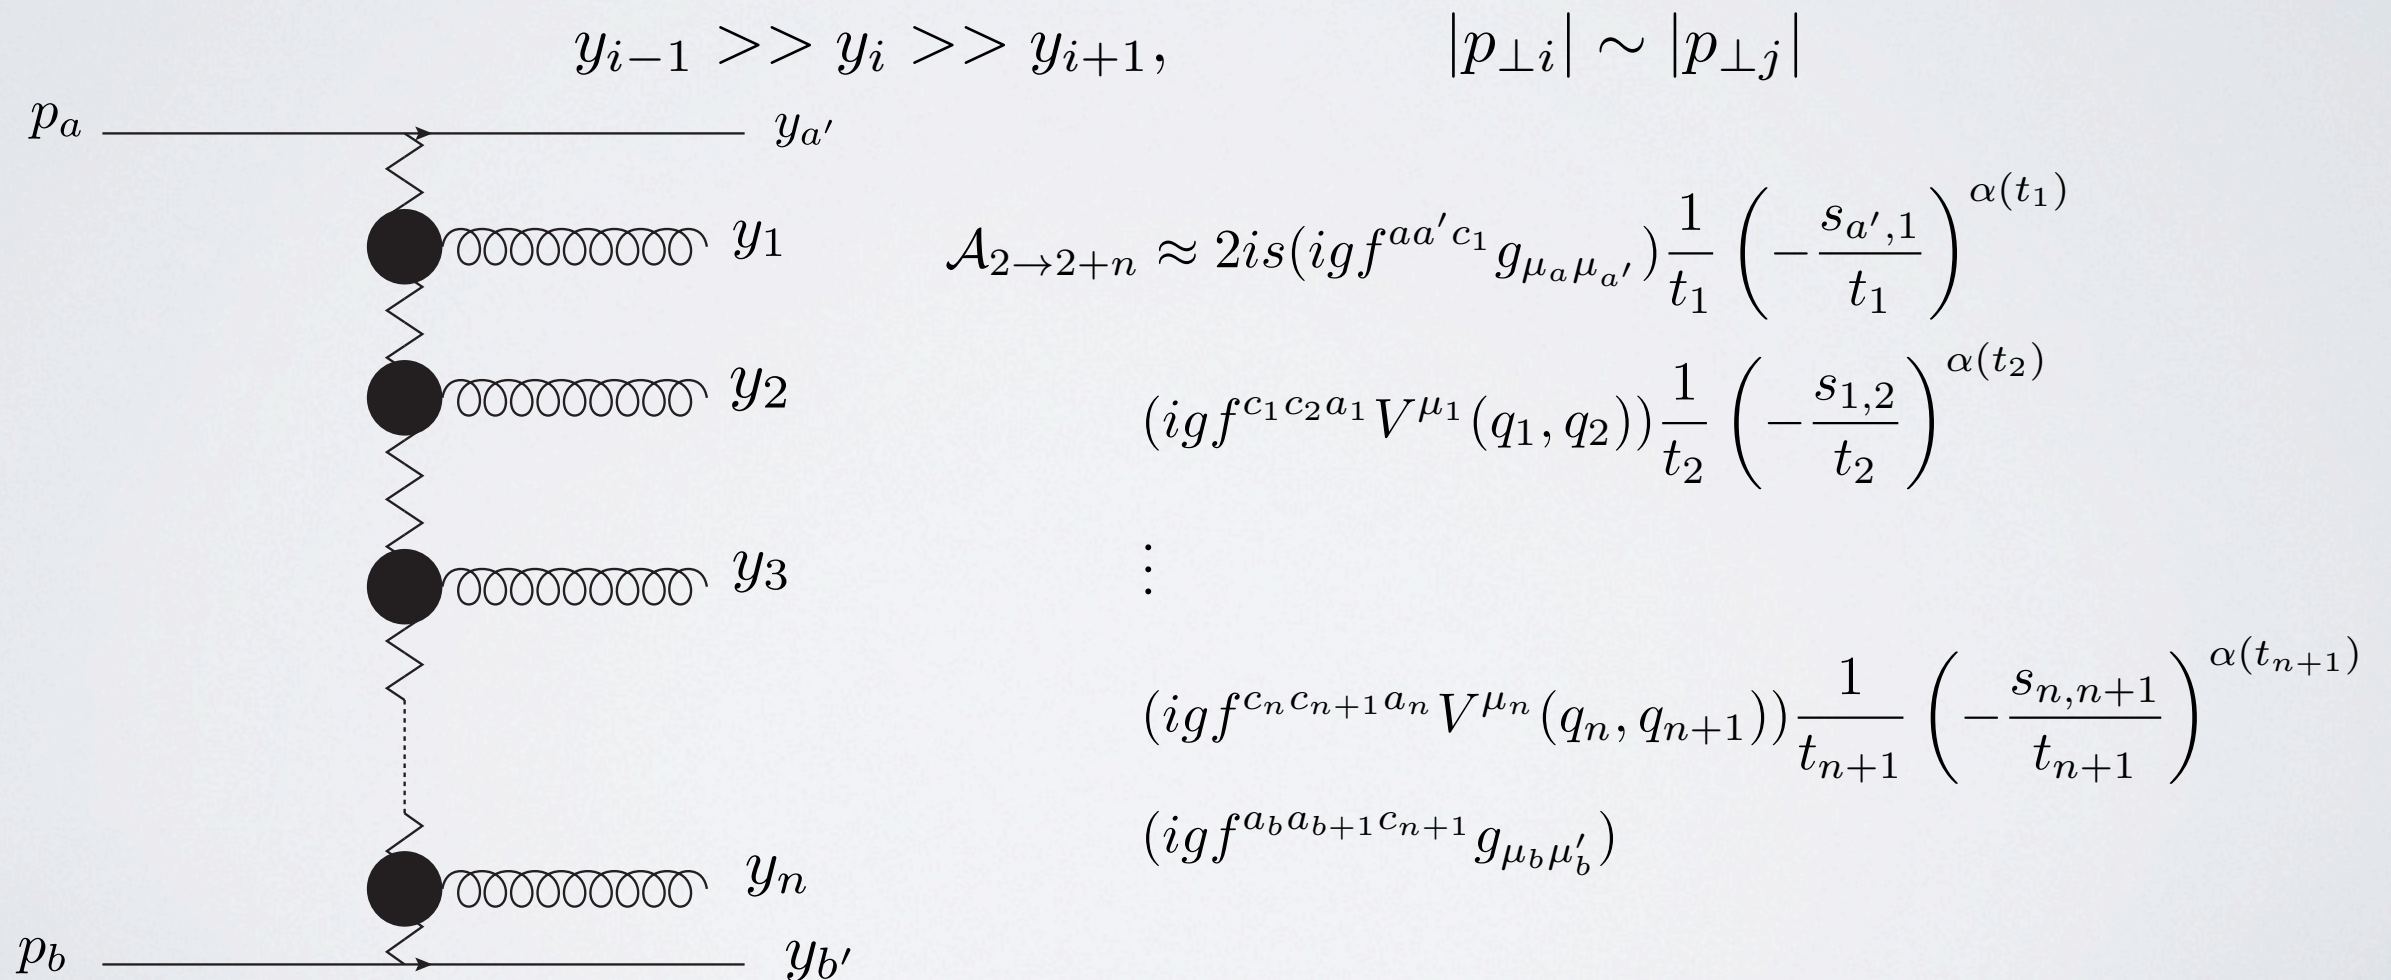 y_{i-1} >> y_i >> y_{i+1}, |p_{⊥i}| ∼ |p_{⊥j}|
p_a
y_{a'}
y_1
\mathcal{A}_{2→2+n} ≈ 2is(igf^{aa'c_1} g_{μ_a μ_{a'}}) \frac{1}{t_1} \left(-\frac{s_{a',1}}{t_1}\right)^{α(t_1)}
y_2
(igf^{c_1c_2a_1} V^{μ_1}(q_1, q_2)) \frac{1}{t_2} \left(-\frac{s_{1,2}}{t_2}\right)^{α(t_2)}
y_3
⋮
(igf^{c_nc_{n+1}a_n} V^{μ_n}(q_n, q_{n+1})) \frac{1}{t_{n+1}} \left(-\frac{s_{n,n+1}}{t_{n+1}}\right)^{α(t_{n+1})}
(igf^{a_ba_{b+1}c_{n+1}} g_{μ_bμ'_b})
y_n
p_b
y_{b'}